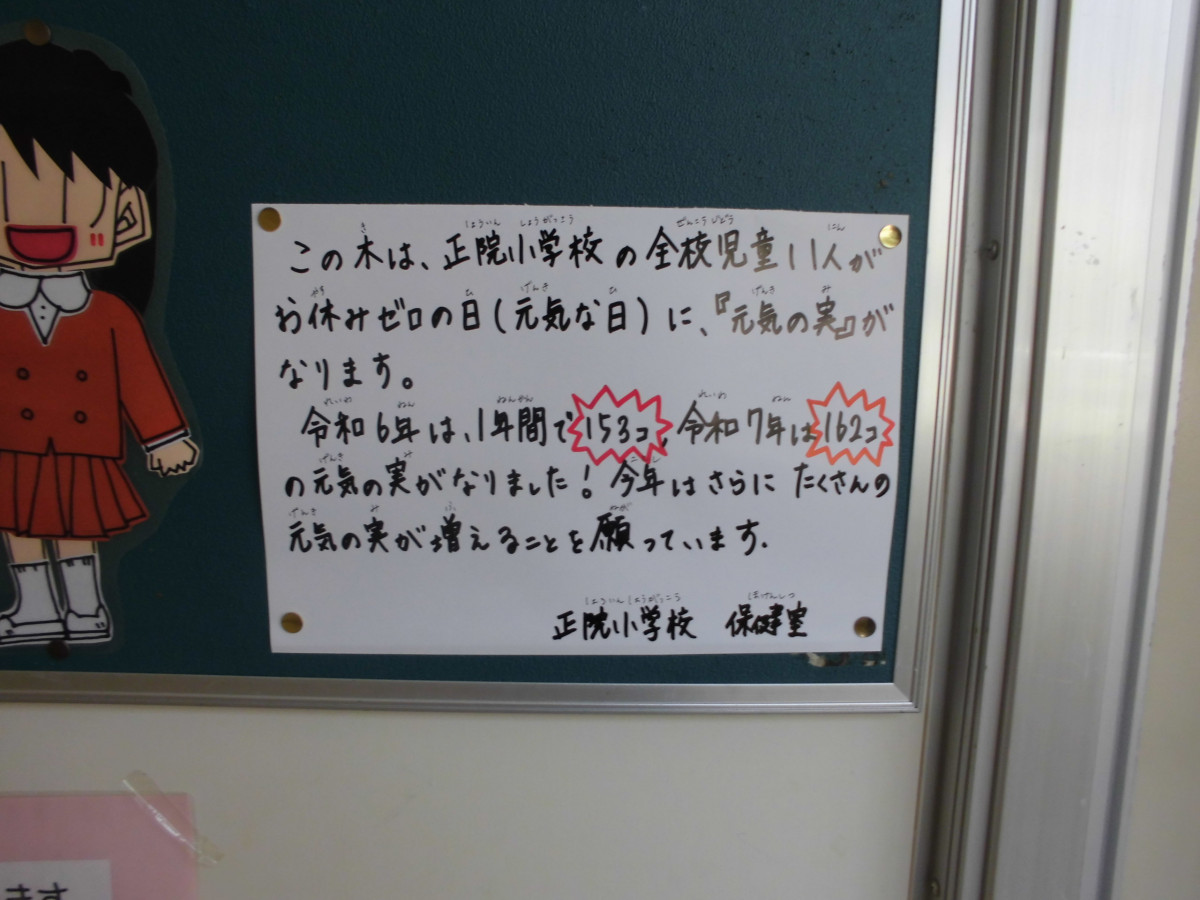 この木は、正院小学校の全校児童11人が
お休みゼロの日(元気な日)に、『元気の実』が
なります。
令和6年は、1年間で153コ、令和7年は162コ
の元気の実がなりました!今年はさらにたくさんの
元気の実が増えることを願っています.
正院小学校 保健室
きます